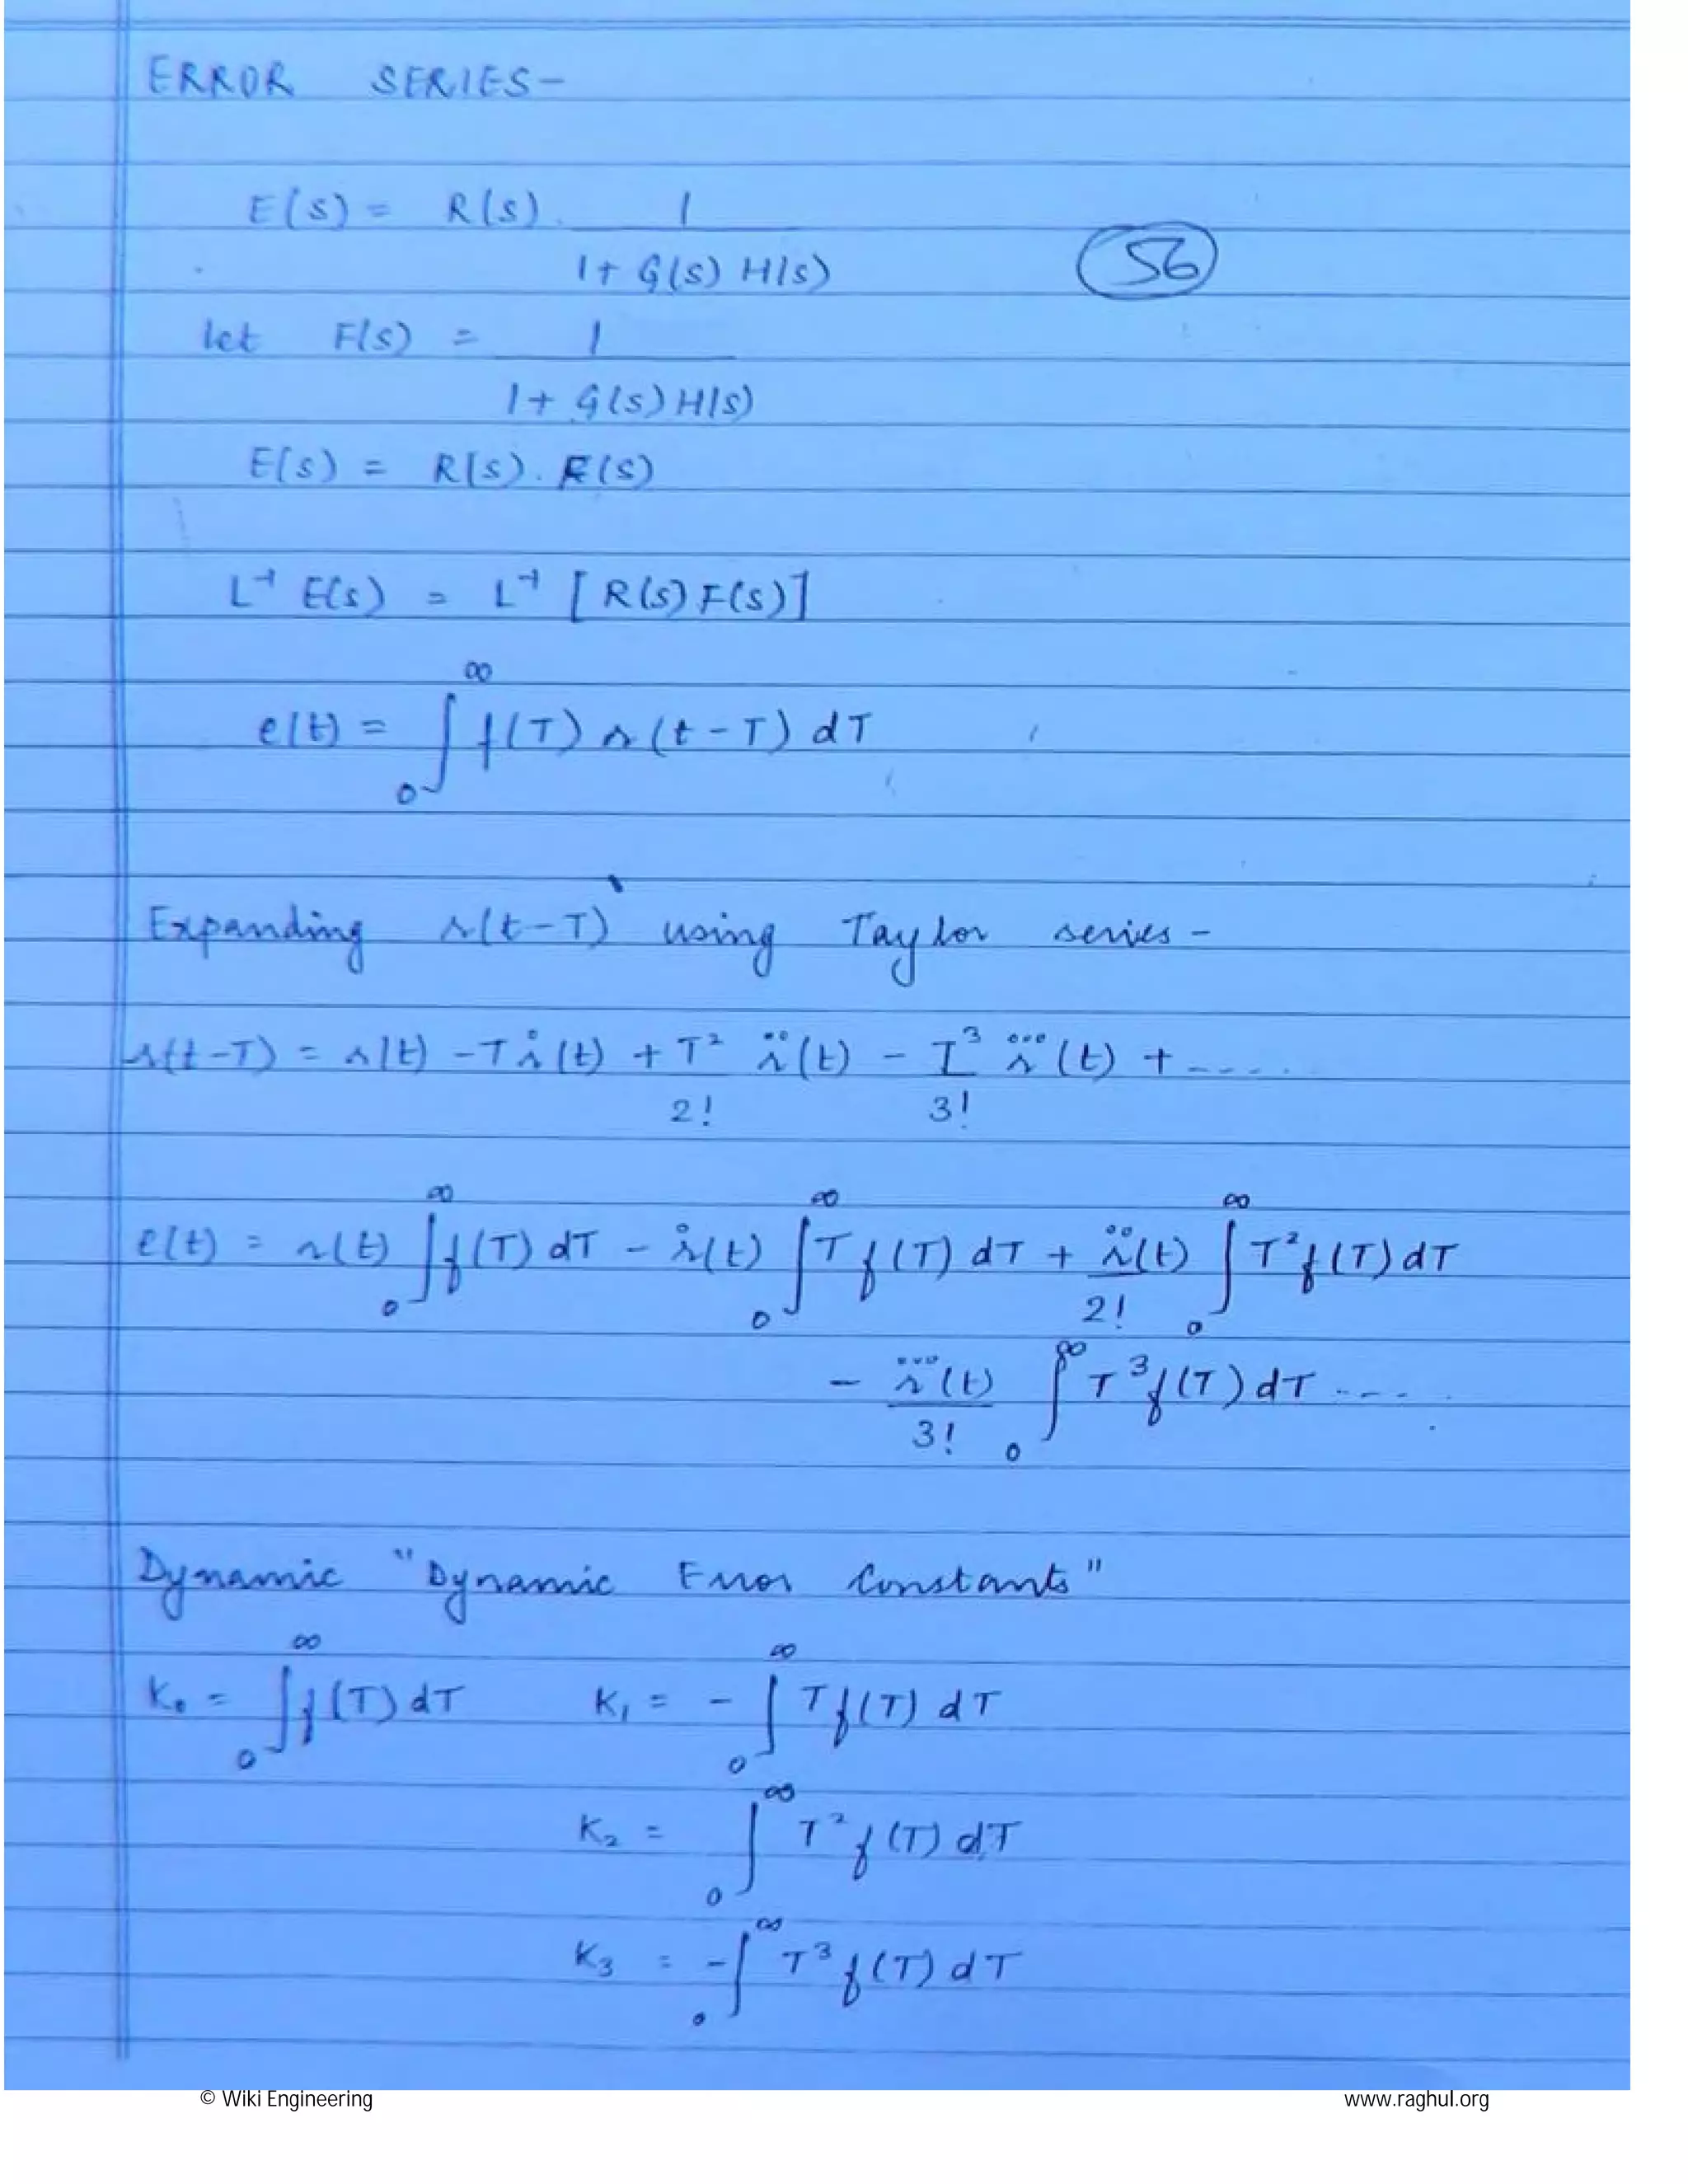 ERROR SERIES-
E(s) = R(s). 1
1+ G(s) H(s)
56
let F(s) = 1
1+ G(s) H(s)
E(s) = R(s). F(s)
L⁻¹ E(s) = L⁻¹ [R(s) F(s)]
e(t) = ∫₀^∞ f(T) r(t-T) dT
Expanding r(t-T) using Taylor series -
r(t-T) = r(t) - T ṙ(t) + T²/2! r̈(t) - T³/3! r⃛(t) + ----.
e(t) = r(t) ∫₀^∞ f(T) dT - ṙ(t) ∫₀^∞ T f(T) dT + r̈(t)/2! ∫₀^∞ T² f(T) dT
- r⃛(t)/3! ∫₀^∞ T³ f(T) dT ----
Dynamic "Dynamic Error Constants"
K₀ = ∫₀^∞ f(T) dT K₁ = - ∫₀^∞ T f(T) dT
K₂ = ∫₀^∞ T² f(T) dT
K₃ = -∫₀^∞ T³ f(T) dT
© Wiki Engineering www.raghul.org